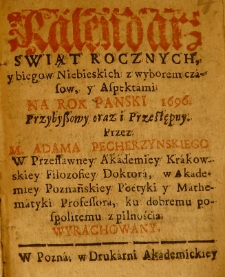 Kalendarz
SWIĄT ROCZNYCH,
y biegow Niebieskich z wyborem cza-
sow, y Aspektami
NA ROK PANSKI 1696.
Przybyszowy oraz i Przestępny.
Przez
M. ADAMA PECHERZYNSKIEGO
W Przesławney Akademiey Krakow-
skiey Filozofiey Doktora, w Akade-
miey Poznańskiey Poetyki y Mathe-
matyki Professora, ku dobremu po-
spolitemu z pilnością
WYRACHOWANY.
W Pozna: w Drukarni Akademickiey